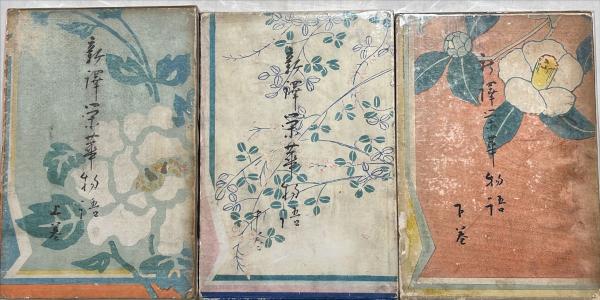 新譯栄華物語
上巻
新譯栄華物語
中巻
新譯栄華物語
下巻